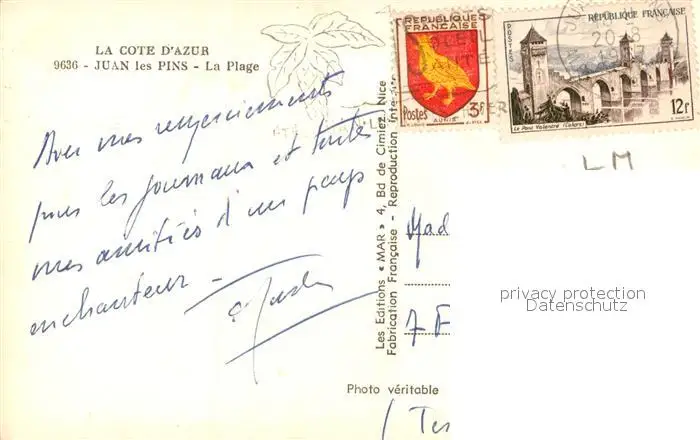 LA COTE D'AZUR
9636 - JUAN les PINS - La Plage
Avec mes remerciements
pour les journaux et toutes
mes amitiés d'un pays
enchanteur -
Les Editions « MAR » 4, Bd de Cimiez, Nice
Fabrication Française - Reproduction Inter
Photo véritable
REPUBLIQUE FRANÇAISE
Postes
AUNIS
3F
POSTES
RÉPUBLIQUE FRANÇAISE
Le Pont Valentré (Cahors)
12F
20-8
LM
Mad
7 F
privacy protection
Datenschutz